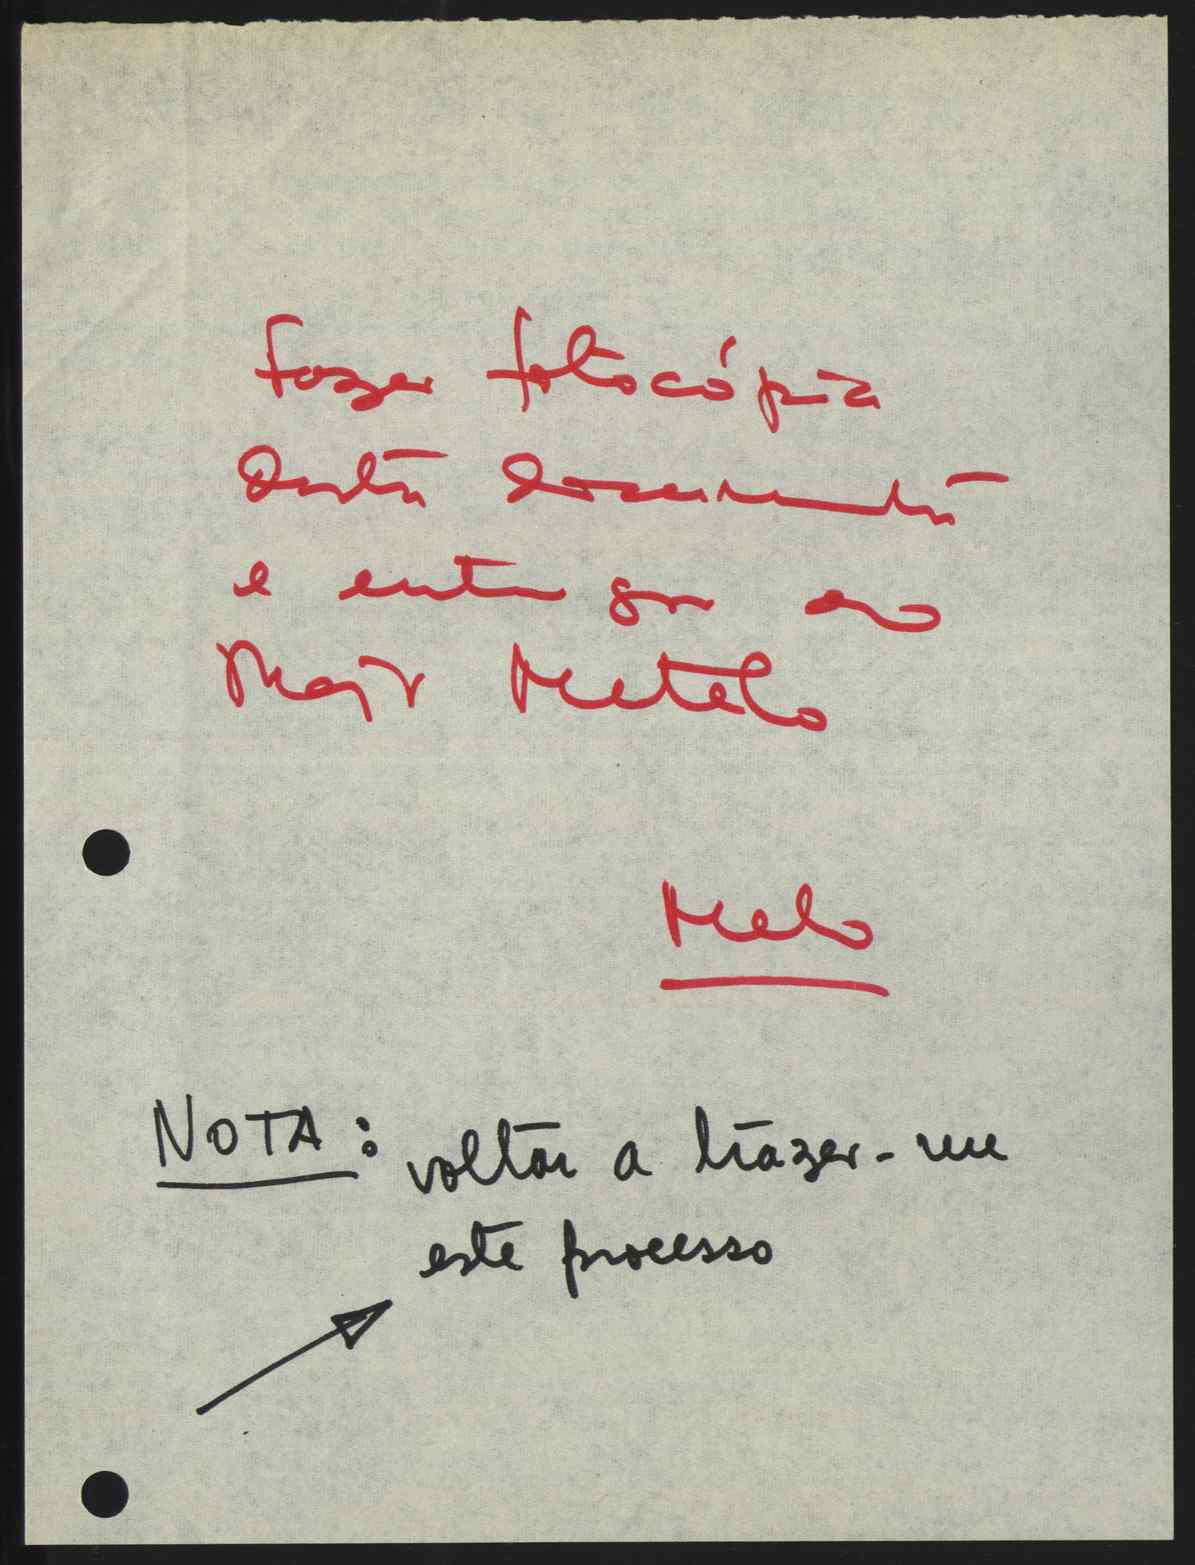 Fazer fotocópia
deste documento
e entregar ao
Major Metelo
Melo
NOTA: voltar a trazer-me
este processo